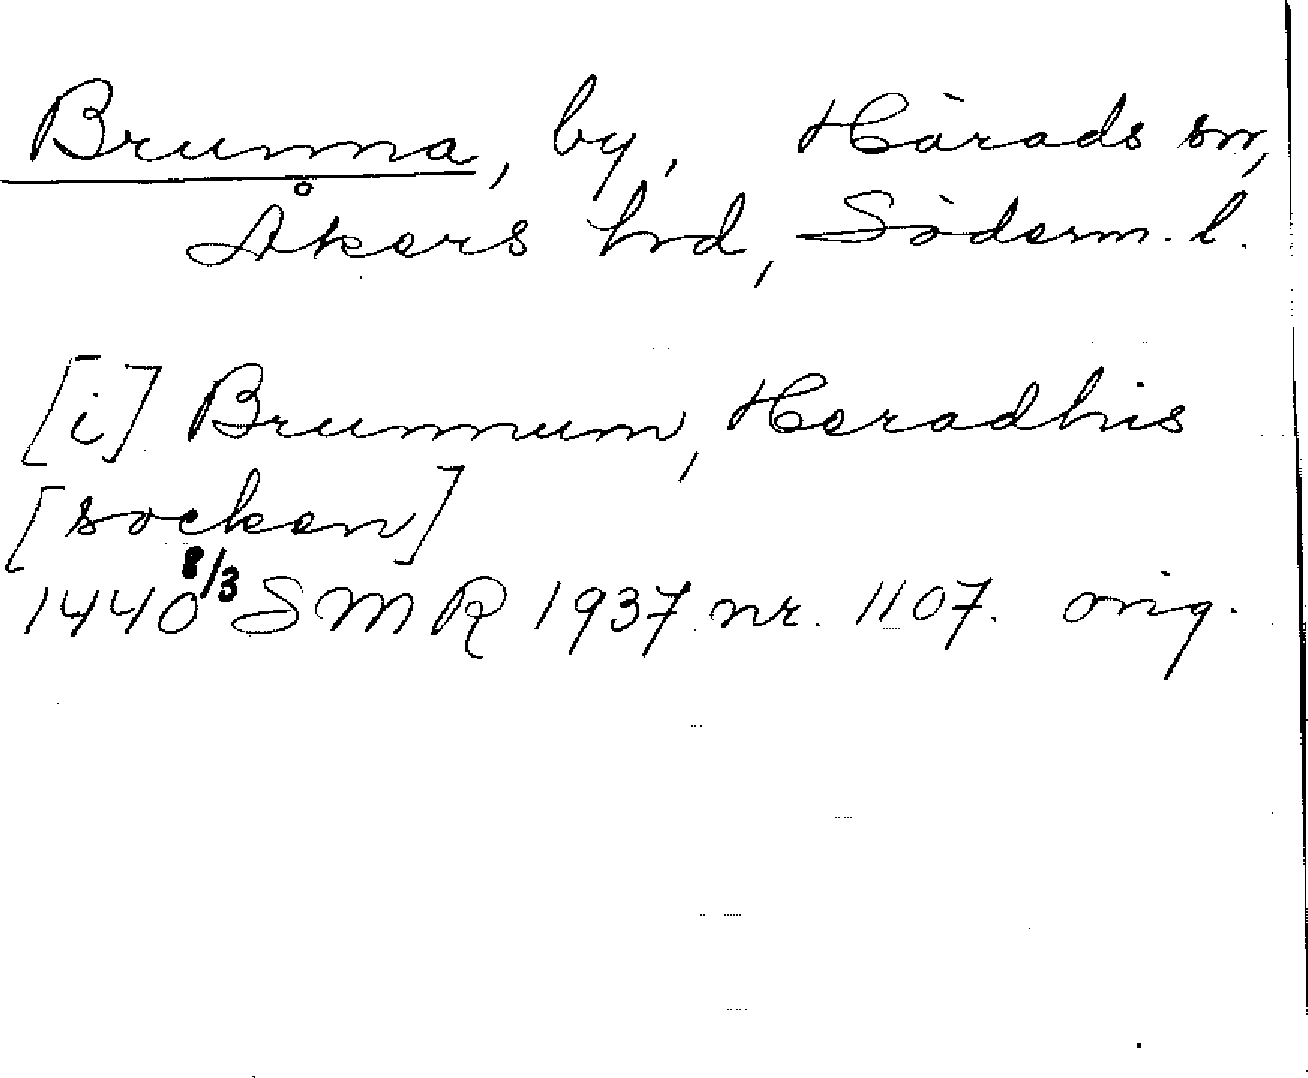 Brunna, by, Härads sn,
Åkers hrd, Söderm. l.
[i] Brunnum, Heradhis
[socken]
1440 8/3 SMR 1937 nr. 1107. orig.